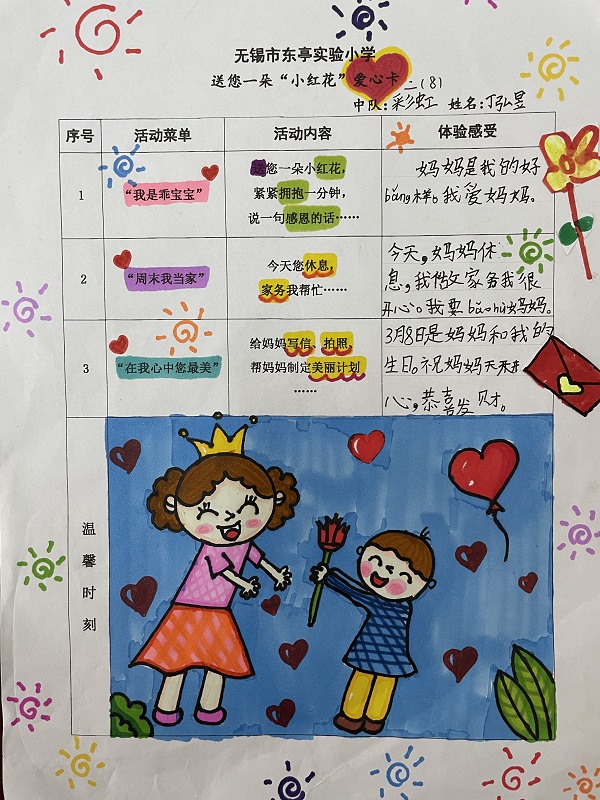 无锡市东亭实验小学
送您一朵“小红花”爱心卡
二(8)
中队:彩虹 姓名:丁弘昱
序号 活动菜单 活动内容 体验感受
1
“我是乖宝宝”
送您一朵小红花,
紧紧拥抱一分钟,
说一句感恩的话……
妈妈是我的好
bǎng样。我爱妈妈。
2
“周末我当家”
今天您休息,
家务我帮忙……
今天,妈妈休
息,我做家务我很
开心。我要bǎo妈妈。
3
“在我心中您最美”
给妈妈写信、拍照,
帮妈妈制定美丽计划
……
3月8日是妈妈和我的
生日。祝妈妈天天开
心,恭喜发财。
温馨时刻